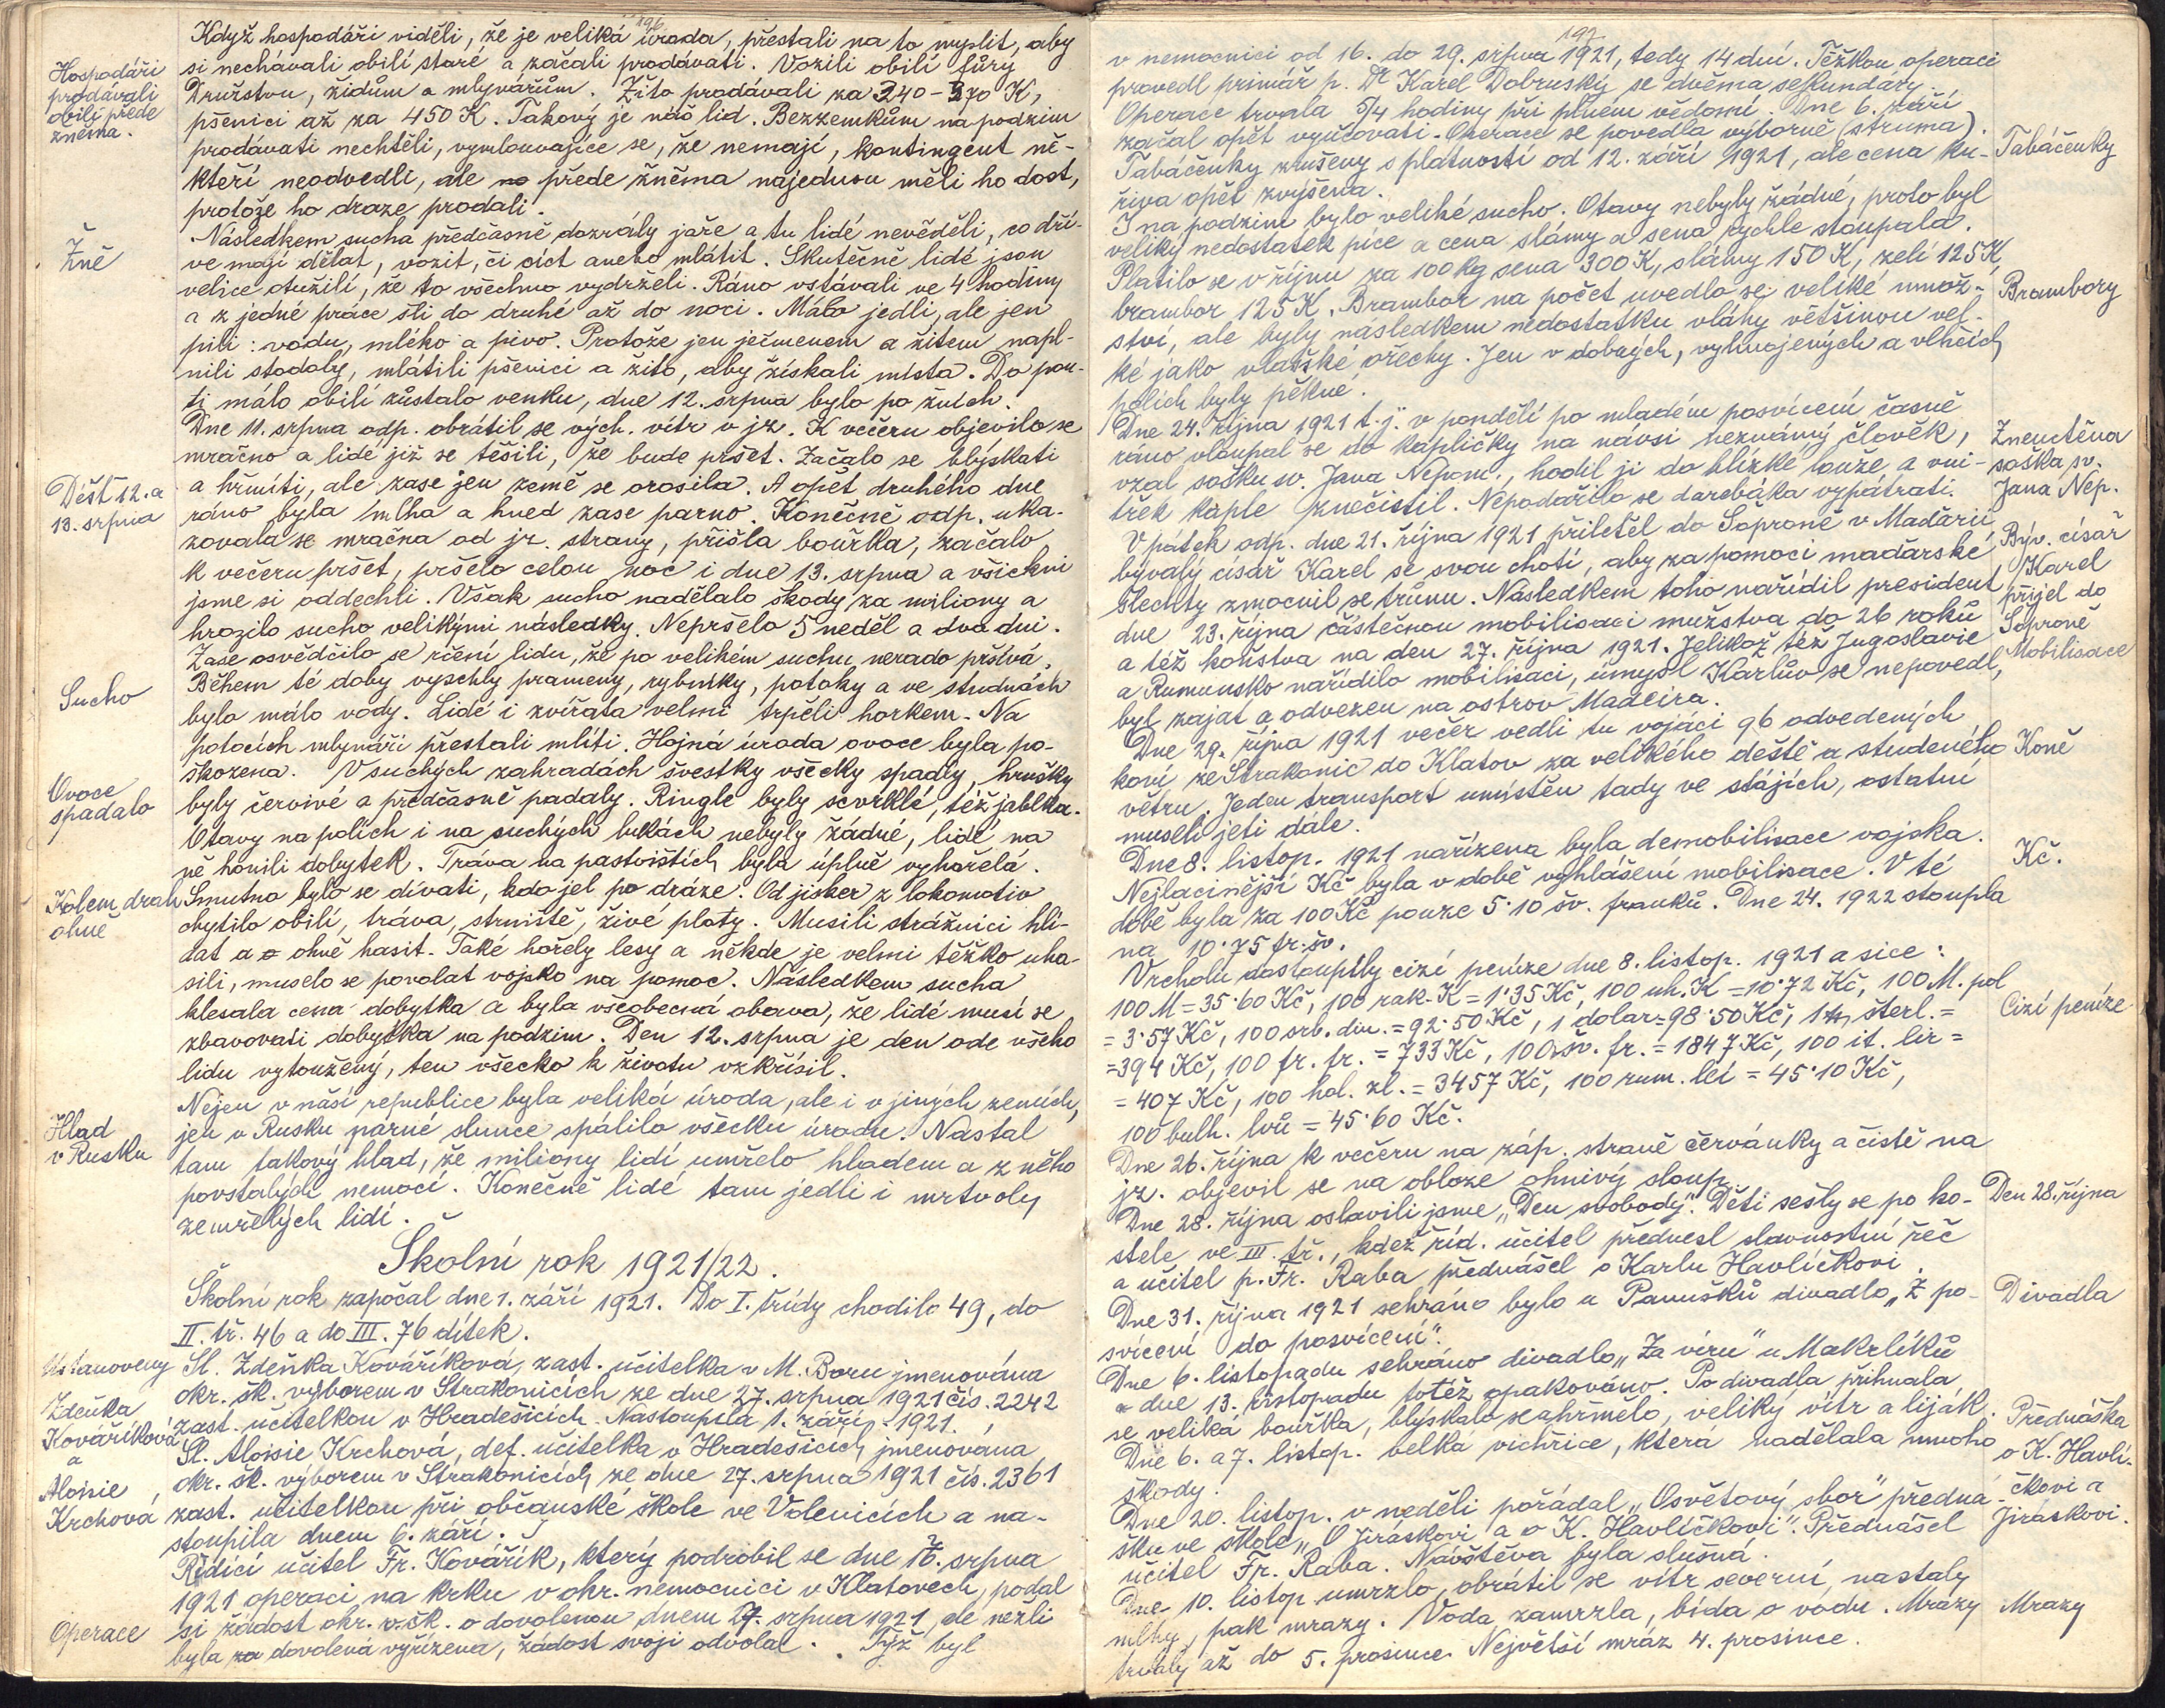 196
Když hospodáři viděli, že je veliká úroda, přestali na to myslit, aby
si nechávali obilí staré a začali prodávati. Vozili obilí fůry
Hospodáři
prodávali
obilí přede
žněma.
Družstvu, židům a mlynářům. Žito prodávali za 240-270 K,
pšenici až za 450 K. Takový je náš lid. Bezzemkům na podzim
prodávati nechtěli, vymlouvajíce se, že nemají, kontingent ně-
kteří neodvedli, ale přede žněma najednou měli ho dost,
protože ho draze prodali.
Žně
Následkem sucha předčasně dozrály jaře a tu lidé nevěděli, co dří-
ve mají dělat, vozit, či síct anebo mlátit. Skutečně lidé jsou
velice otužilí, že to všechno vydrželi. Ráno vstávali ve 4 hodiny
a z jedné práce šli do druhé až do noci. Málo jedli, ale jen
pili: vodu, mléko a pivo. Protože jen ječmenem a žitem napl-
nili stodoly, mlátili pšenici a žito, aby získali místa. Do pou-
ti málo obilí zůstalo venku, dne 12. srpna bylo po žních.
Dne 11. srpna odp. obrátil se vých. vítr v jz. K večeru objevilo se
mračno a lidé již se těšili, že bude pršet. Začalo se blýskati
Déšť 12. a
13. srpna
a hřmíti, ale zase jen země se orosila. A opět druhého dne
ráno byla mlha a hned zase parno. Konečně odp. uka-
zovala se mračna od jz. strany, přišla bouřka, začalo
k večeru pršet, pršelo celou noc i dne 13. srpna a všichni
jsme si oddechli. Však sucho nadělalo škody za miliony a
hrozilo sucho velikými následky. Nepršelo 5 neděl a dva dni.
Zase osvědčilo se rčení lidu, že po velikém suchu nerado pršívá.
Sucho
Během té doby vyschly prameny, rybníky, potoky a ve studnách
bylo málo vody. Lidé i zvířata velmi trpěli horkem. Na
potocích mlynáři přestali mlíti. Hojná úroda ovoce byla po-
škozena. V suchých zahradách švestky všecky spadly, hrušky
Ovoce
spadalo
byly červivé a předčasně padaly. Ringle byly scvrklé, též jablka.
Otavy na polích i na suchých lukách nebyly žádné, lidé na
ně honili dobytek. Tráva na pastvištích byla úplně vyhořelá.
Kolem drah
ohně
Smutno bylo se dívati, kdo jel po dráze. Od jisker z lokomotiv
chytilo obilí, tráva, strniště, živé ploty. Musili strážníci hlí-
dat a ohně hasit. Také hořely lesy a někde je velmi těžko uha-
sili, muselo se povolat vojsko na pomoc. Následkem sucha
klesala cena dobytka a byla všeobecná obava, že lidé musí se
zbavovati dobytka na podzim. Den 12. srpna je den ode všeho
lidu vytoužený, ten všecko k životu vzkřísil.
Hlad
v Rusku
Nejen v naší republice byla veliká úroda, ale i v jiných zemích,
jen v Rusku parné slunce spálilo všecku úrodu. Nastal
tam takový hlad, že miliony lidí umřelo hladem a z něho
povstalých nemocí. Konečně lidé tam jedli i mrtvoly
zemřelých lidí.
Školní rok 1921/22.
Školní rok započal dne 1. září 1921. Do I. třídy chodilo 49, do
II. tř. 46 a do III. 76 dítek.
Ustanoveny
Zdeňka
Kováříková
a
Aloisie
Krchová
Sl. Zdeňka Kováříková, zast. učitelka v M. Boru jmenována
okr. šk. výborem v Strakonicích ze dne 27. srpna 1921 čís. 2242
zast. učitelkou v Hradešicích. Nastoupila 1. září 1921.
Sl. Aloisie Krchová, def. učitelka v Hradešicích jmenována
okr. šk. výborem v Strakonicích ze dne 27. srpna 1921 čís. 2361
zast. učitelkou při občanské škole ve Volenicích a na-
stoupila dnem 6. září.
Řídící učitel Fr. Kovářík, který podrobil se dne 18. srpna
1921 operaci na krku v okr. nemocnici v Klatovech, podal
Operace
si žádost okr. v. šk. o dovolenou dnem 27. srpna 1921, ale nežli
byla dovolená vyřízena, žádost svoji odvolal. Týž byl
197
v nemocnici od 16. do 29. srpna 1921, tedy 14 dní. Těžkou operaci
provedl primář p. Dr Karel Dobruský se dvěma sekundáry.
Operace trvala 5/4 hodiny při plném vědomí. Dne 6. září
začal opět vyučovati. Operace se povedla výborně (struma).
Tabáčenky
Tabáčenky zrušeny s platností od 12. září 1921, ale cena ku-
řiva opět zvýšena.
I na podzim bylo veliké sucho. Otavy nebyly žádné, proto byl
veliký nedostatek píce a cena slámy a sena rychle stoupala.
Platilo se v říjnu za 100 kg sena 300 K, slámy 150 K, zelí 125 K,
Brambory
brambor 125 K. Brambor na počet uvedlo se veliké množ-
ství, ale byly následkem nedostatku vláhy většinou vel-
ké jako vlašské ořechy. Jen v dobrých, vyhnojených a vlhčích
polích byly pěkné.
Dne 24. října 1921 t. j. v pondělí po mladém posvícení časně
Zneuctěna
soška sv.
Jana Nep.
ráno vloupal se do kapličky na návsi neznámý člověk,
vzal sošku sv. Jana Nepom., hodil ji do blízké louže a vni-
třek kaple znečistil. Nepodařilo se darebáka vypátrati.
Býv. císař
Karel
přijel do
Šoproně
Mobilisace
V pátek odp. dne 21. října 1921 přiletěl do Šoproně v Maďarii
bývalý císař Karel se svou chotí, aby za pomoci maďarské
šlechty zmocnil se trůnu. Následkem toho nařídil president
dne 23. října částečnou mobilisaci mužstva do 26 roků
a též koňstva na den 27. října 1921. Jelikož též Jugoslavie
a Rumunsko nařídilo mobilisaci, úmysl Karlův se nepovedl,
byl zajat a odvezen na ostrov Madeira.
Koně
Dne 29. října 1921 večer vedli tu vojáci 96 odvedených
koní ze Strakonic do Klatov za velikého deště a studeného
větru. Jeden transport umístěn tady ve stájích, ostatní
museli jeti dále.
Dne 8. listop. 1921 nařízena byla demobilisace vojska.
Kč.
Nejlacinější Kč byla v době vyhlášení mobilisace. V té
době byla za 100 Kč pouze 5·10 šv. franků. Dne 24. 1922 stoupla
na 10·75 fr. šv.
Vrcholu dostoupily cizí peníze dne 8. listop. 1921 a sice:
Cizí peníze
100 M = 35·60 Kč, 100 rak. K = 1·35 Kč, 100 uh. K = 10·72 Kč, 100 M. pol
= 3·57 Kč, 100 srb. din. = 92·50 Kč, 1 dolar = 98·50 Kč, 1 šterl. =
= 394 Kč, 100 fr. fr. = 733 Kč, 100 šv. fr. = 1847 Kč, 100 it. lir =
= 407 Kč, 100 hol. zl. = 3457 Kč, 100 rum. lei = 45·10 Kč,
100 bulh. lvů = 45·60 Kč.
Dne 26. října k večeru na záp. straně červánky a čistě na
jz. objevil se na obloze ohnivý sloup.
Den 28. října
Dne 28. října oslavili jsme „Den svobody". Děti sešly se po ko-
stele ve III. tř., kdež říd. učitel přednesl slavnostní řeč
a učitel p. Fr. Raba přednášel o Karlu Havlíčkovi.
Divadla
Dne 31. října 1921 sehráno bylo u Panušků divadlo „Z po-
svícení do posvícení".
Dne 6. listopadu sehráno divadlo „Za víru" u Makrlíků
a dne 13. listopadu totéž opakováno. Po divadla přihnala
se veliká bouřka, blýskalo se a hřmělo, veliký vítr a liják.
Dne 6. a 7. listop. velká vichřice, která nadělala mnoho
škody.
Přednáška
o K. Havlí-
čkovi a
Jiráskovi.
Dne 20. listop. v neděli pořádal „Osvětový sbor" předná-
šku ve škole „O Jiráskovi a o K. Havlíčkovi". Přednášel
učitel Fr. Raba. Návštěva byla slušná.
Dne 10. listop. umrzlo, obrátil se vítr severní, nastaly
Mrazy
mlhy, pak mrazy. Voda zamrzla, bída o vodu. Mrazy
trvaly až do 5. prosince. Největší mráz 4. prosince.